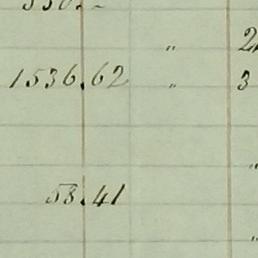 " 2
1536.62 " 3
"
53.41
"